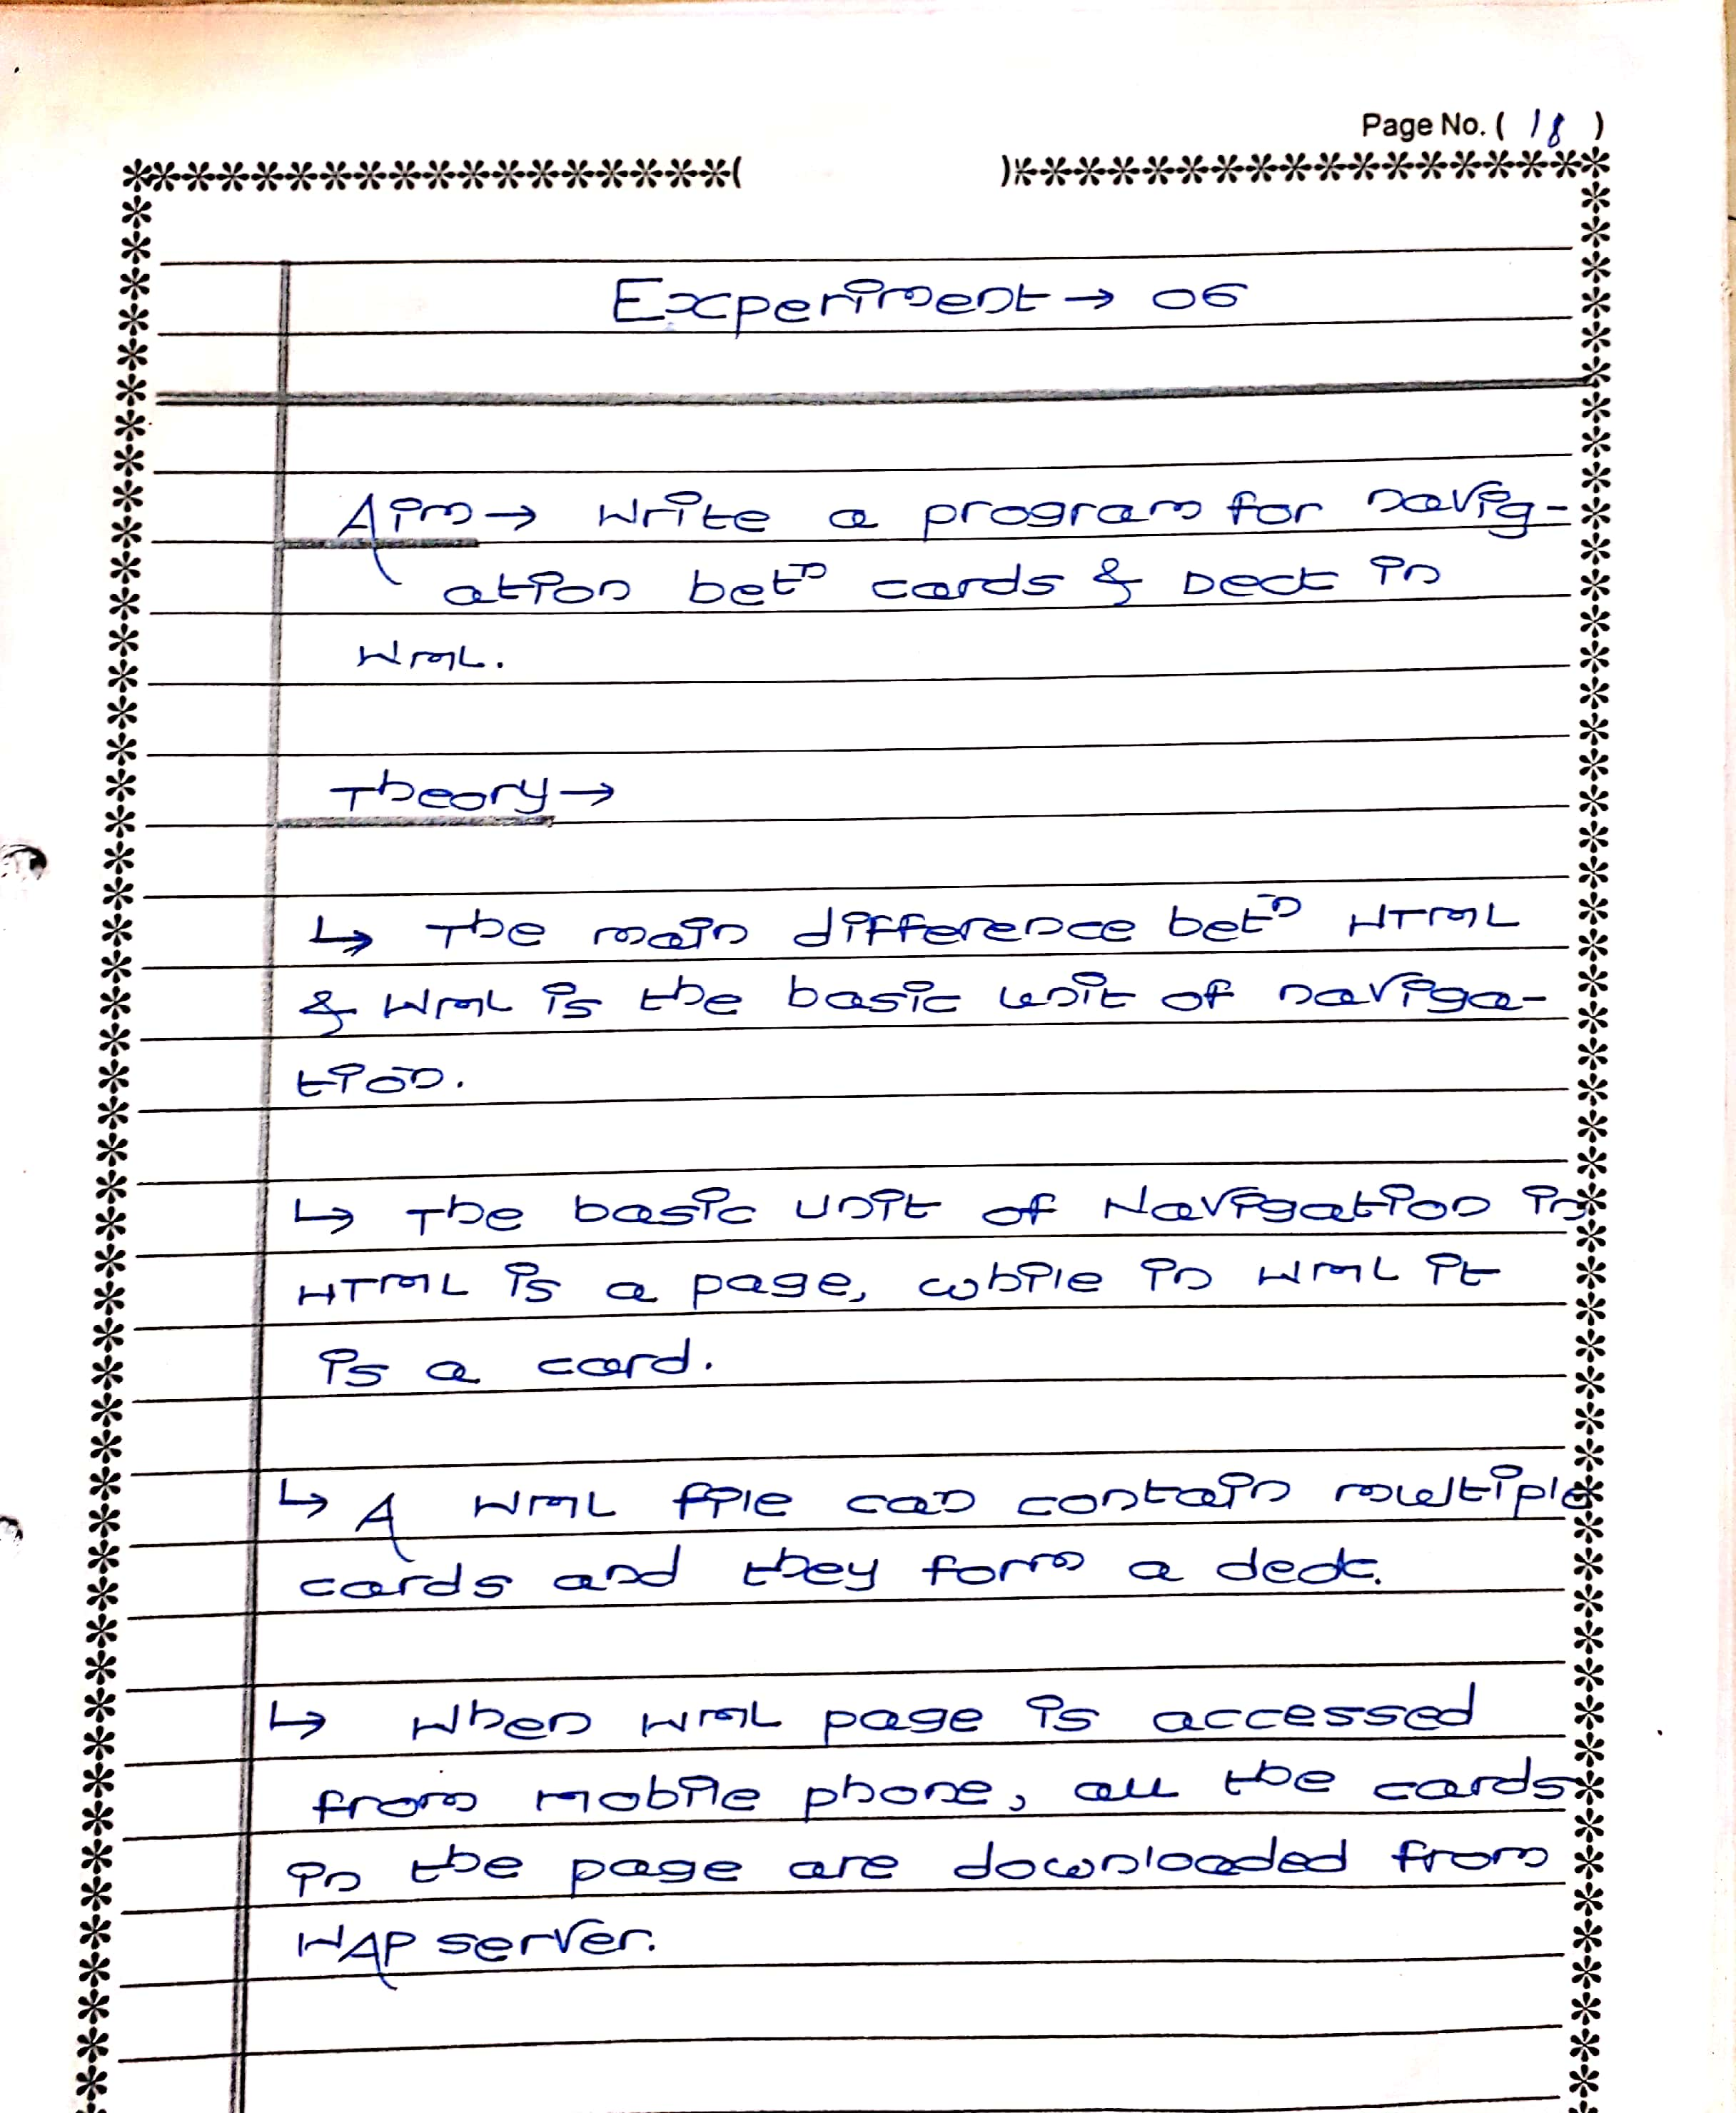 Page No. ( 18 )
Experiment → 06
Aim → Write a program for navig-
ation betn cards & Deck in
WML.
Theory →
↳ The main difference betn HTML
& WML is the basic unit of naviga-
tion.
↳ The basic unit of Navigation in
HTML is a page, while in WML it
is a card.
↳ A WML file can contain multiple
cards and they form a deck.
↳ When WML page is accessed
from mobile phone, all the cards
in the page are downloaded from
WAP server.